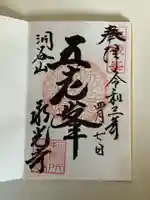 奉拝
令和三年
四月七日
五老峯
洞谷山
永光寺